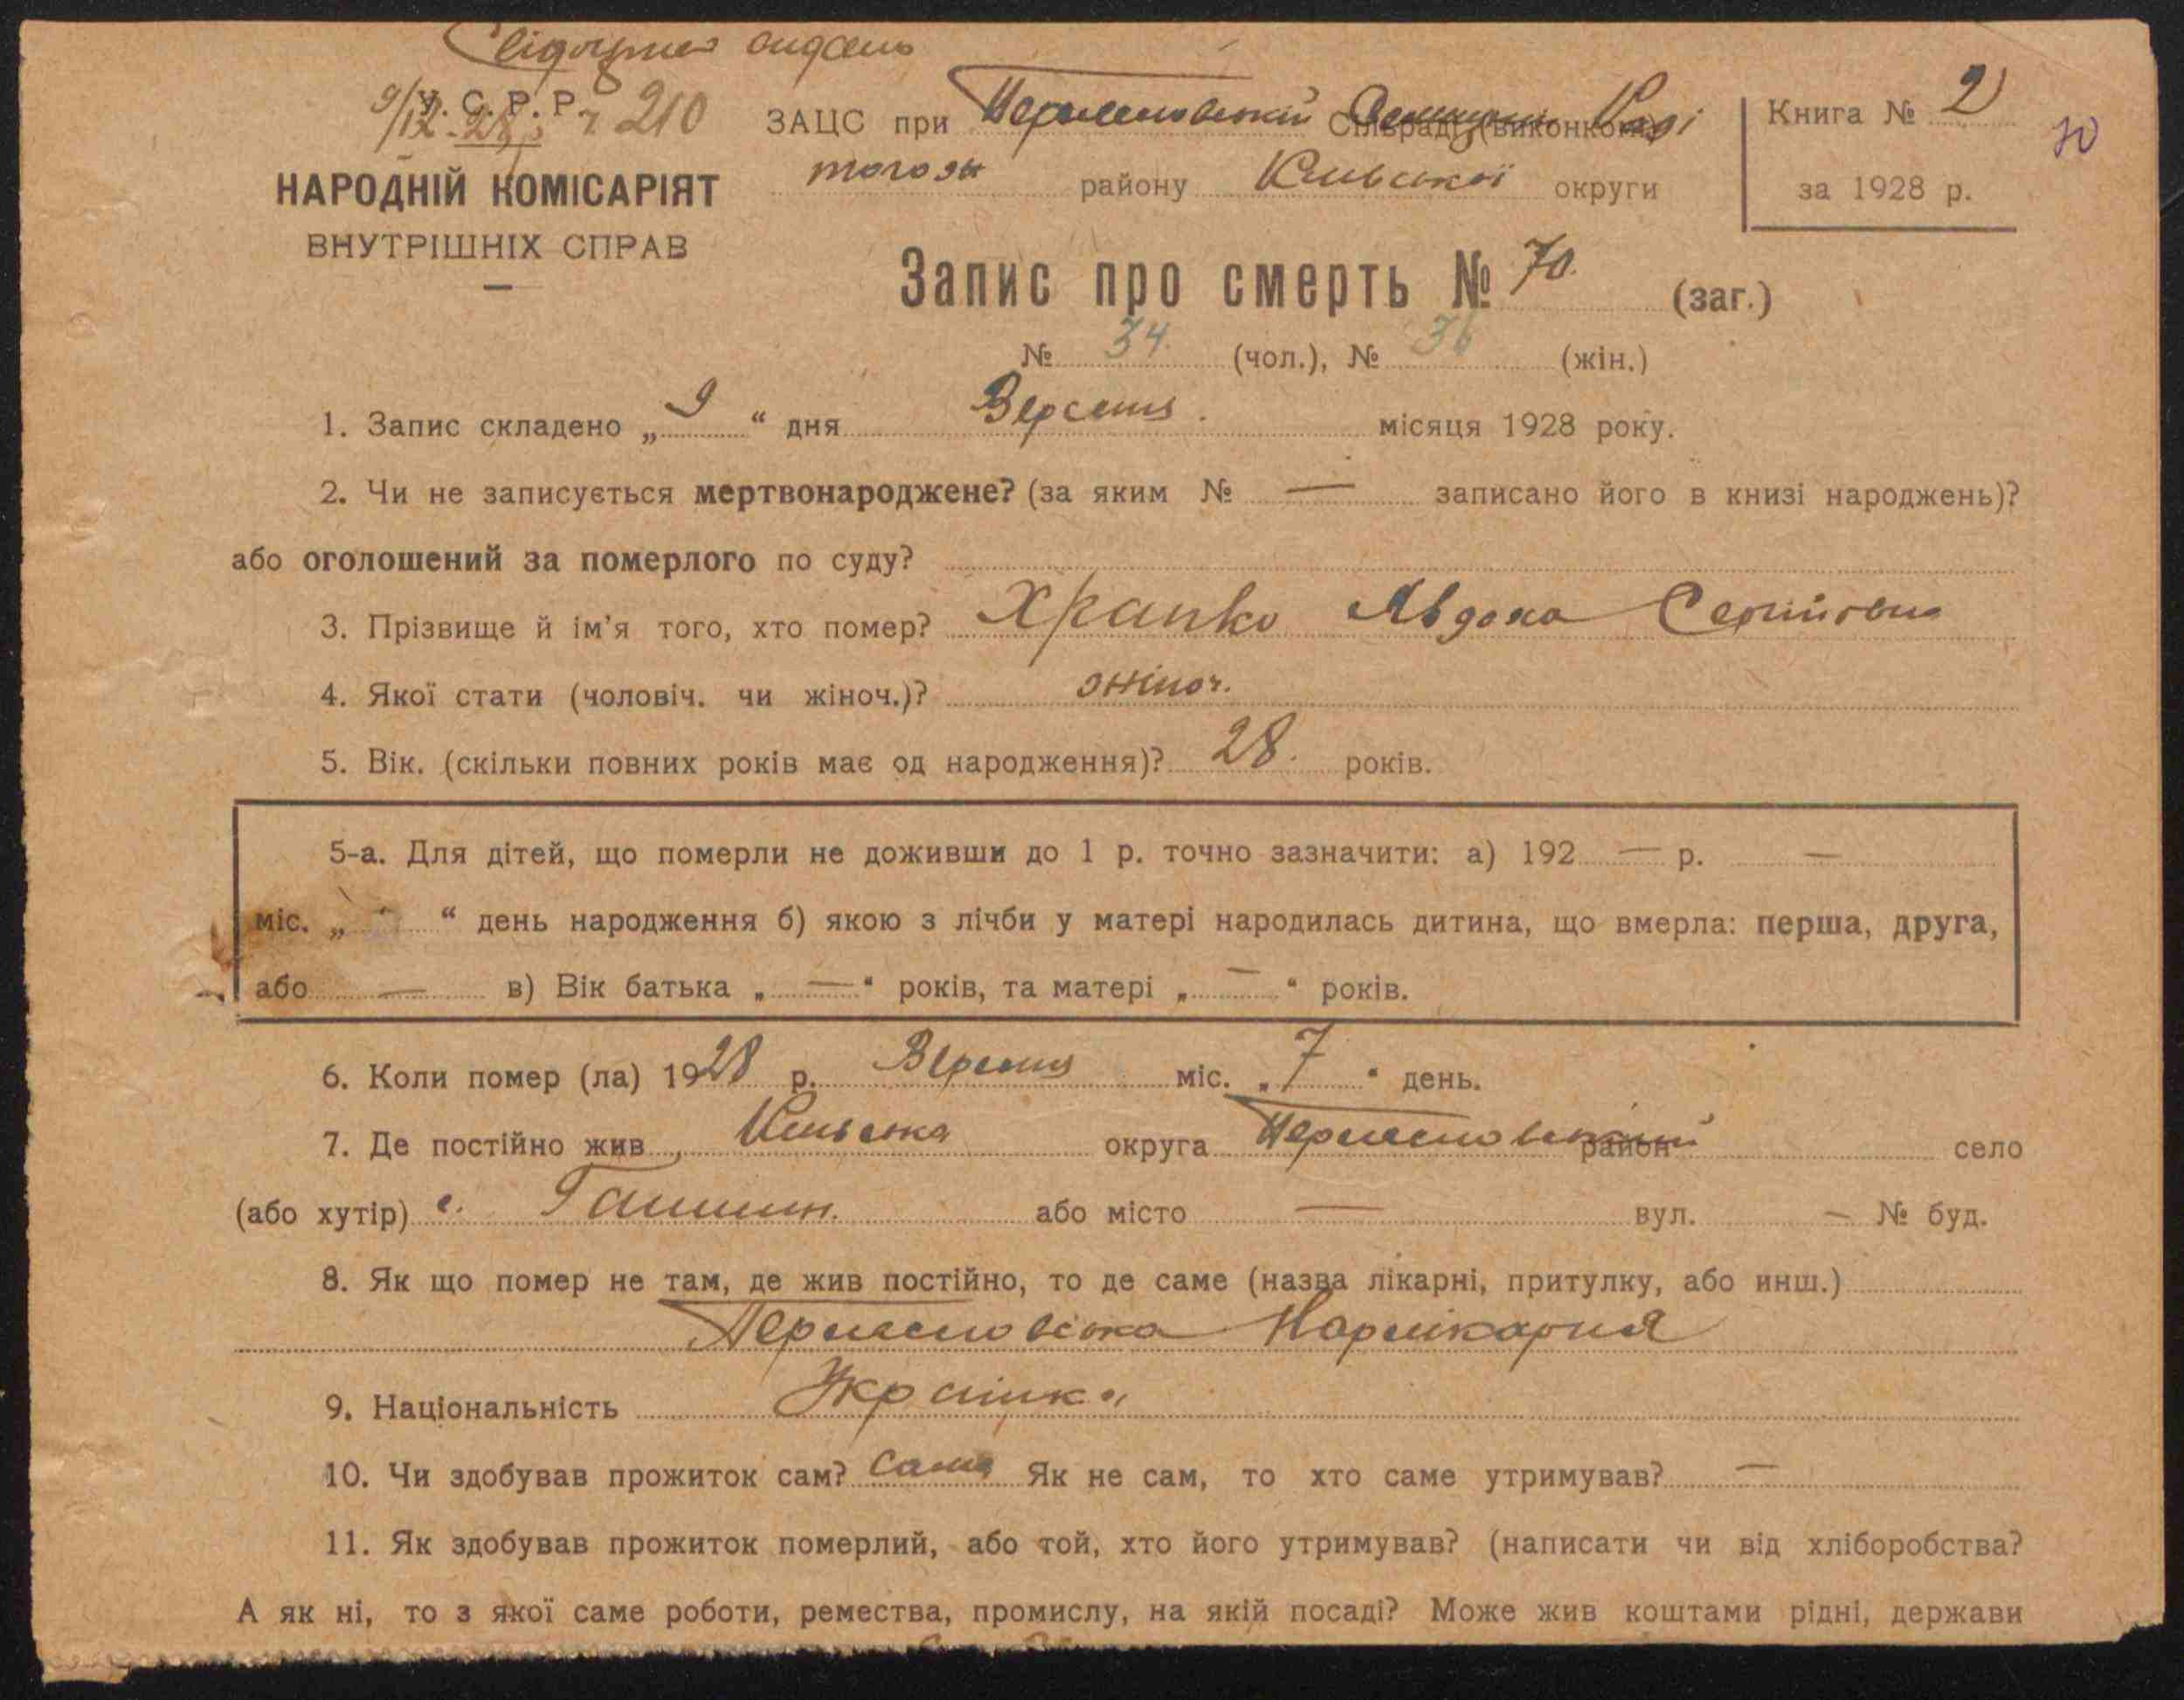 видань
У. С. Р. Р.
9/12. 28 ч 210
ЗАЦС при Переяславській Сільраді (виконкомі) Раді
Книга № 2
тогож району Київської округи
за 1928 р.
НАРОДНІЙ КОМІСАРІЯТ
ВНУТРІШНІХ СПРАВ
Запис про смерть № 70. (заг.)
№ 34 (чол.), № 36 (жін.)
1. Запис складено „ 9 “ дня Вересня місяця 1928 року.
2. Чи не записується мертвонароджене? (за яким № — записано його в книзі народжень)?
або оголошений за померлого по суду?
3. Прізвище й ім'я того, хто помер? Храпко Явдоха Сергіївна
4. Якої стати (чоловіч. чи жіноч.)? жіноч.
5. Вік. (скільки повних років має од народження)? 28. років.
5-а. Для дітей, що померли не доживши до 1 р. точно зазначити: а) 192 — р. —
міс. „ “ день народження б) якою з лічби у матері народилась дитина, що вмерла: перша, друга,
або — в) Вік батька „ — “ років, та матері „ — “ років.
6. Коли помер (ла) 1928 р. Вересня міс. „ 7 “ день.
7. Де постійно жив Київська округа Переяславський район село
(або хутір) с. Гашин. або місто — вул. — № буд.
8. Як що помер не там, де жив постійно, то де саме (назва лікарні, притулку, або инш.)
Переяславська Нарлікарня
9. Національність Українка
10. Чи здобував прожиток сам? Сама Як не сам, то хто саме утримував? —
11. Як здобував прожиток померлий, або той, хто його утримував? (написати чи від хліборобства?
А як ні, то з якої саме роботи, ремества, промислу, на якій посаді? Може жив коштами рідні, держави